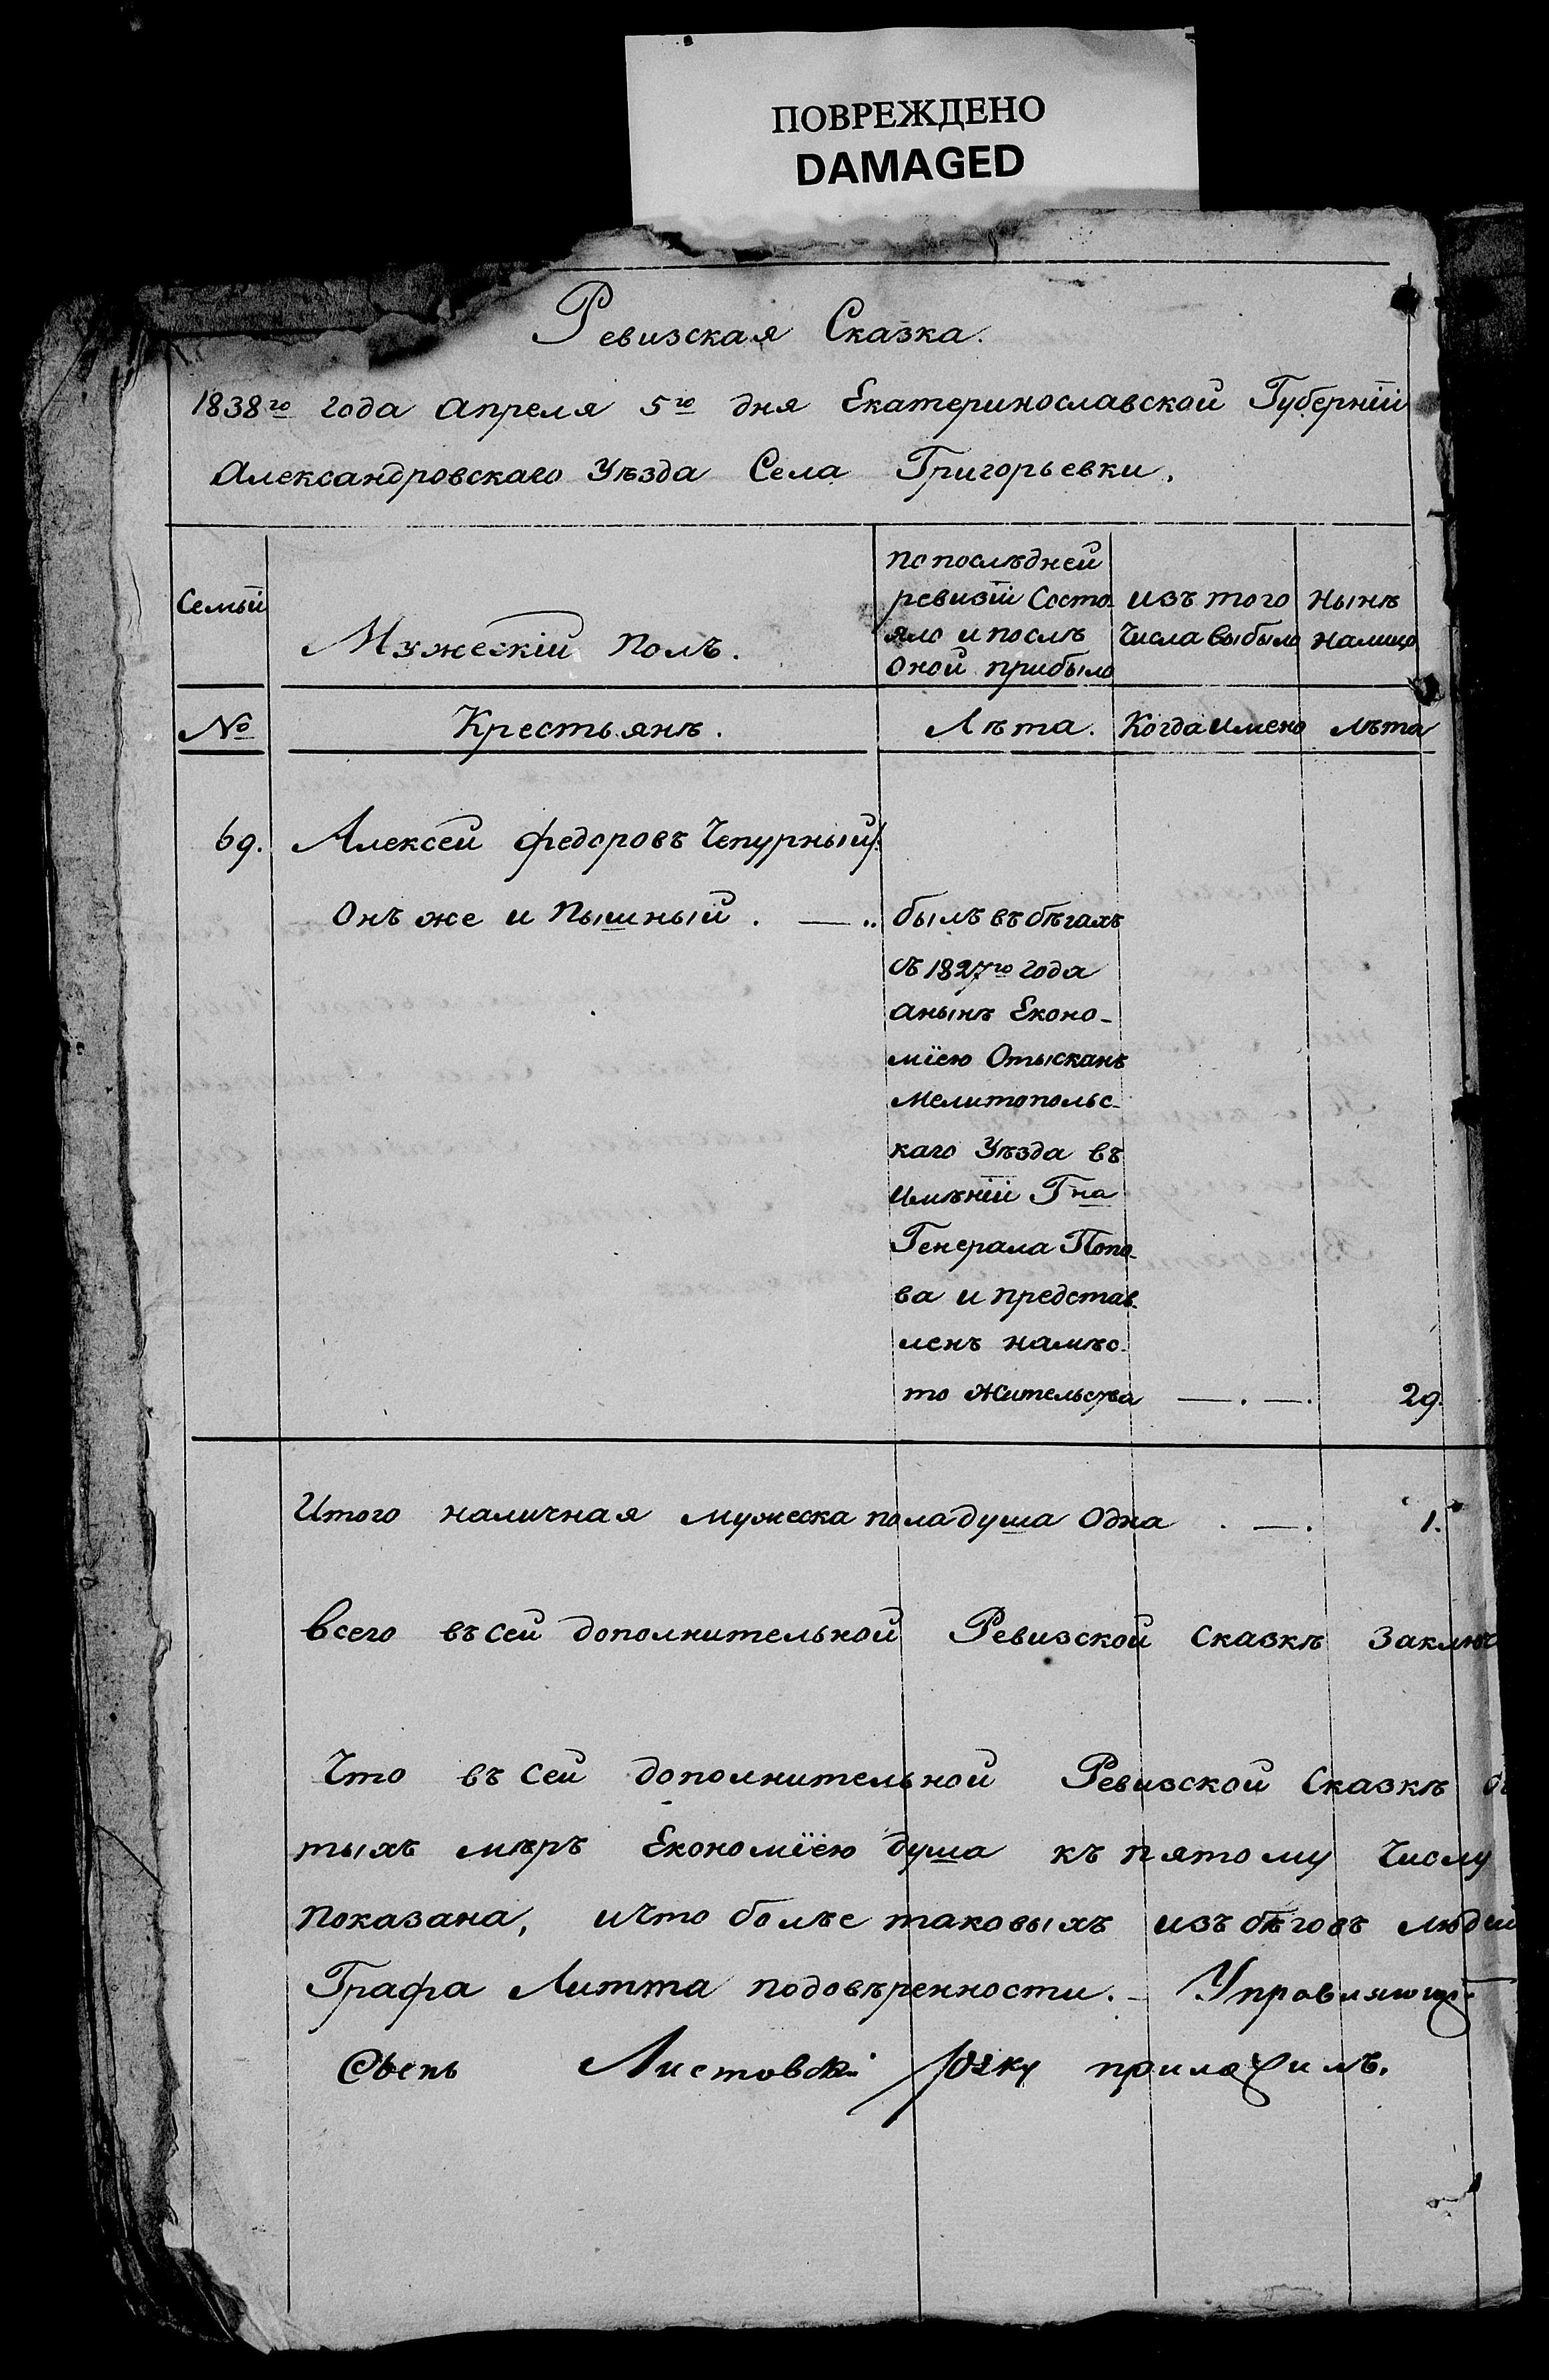 ПОВРЕЖДЕНО
DAMAGED
Ревизская Сказка.
1838го года Апреля 5го дня Екатеринославской Губерніи
Александровскаго Уѣзда Села Григорьевки.
Семьи
Мужескій Полъ.
По послѣдней
ревизіи Состо-
яло и послѣ
оной прибыло
изъ того
Числа выбыло
Нынѣ
налицо
№
Крестьянъ.
Лѣта.
Когда имено
лѣта
69.
Алексей Федоровъ Чепурный
Онъ же и Пышный . — ..
былъ въ бѣгахъ
съ 1827го года
а нынѣ Еконо-
міею Отысканъ
Мелитопольс-
каго Уѣзда въ
имѣніи Гна
Генерала Попо-
ва и представ-
ленъ на мѣс-
то Жительства — . — .
29.
Итого наличная мужеска пола душа Одна . — .
1.
Всего въ сей дополнительной Ревизской сказкѣ Заключ
Что въ сей дополнительной Ревизской Сказкѣ
тыхъ мѣръ Економіею душа къ пятому Числу
показана, и что болѣе таковыхъ изъ бѣговъ людей
Графа Литта по довѣренности. — Управляющ
Листовскі руку приложилъ.